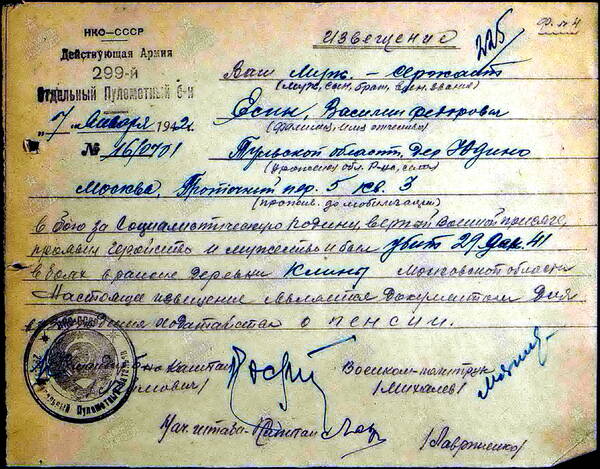 НКО—СССР
Действующая Армия
299-й
Отдельный Пулеметный б-н
"7" января 1942г.
№ 16/0701
Ф. №4
225
Извещение
Ваш Муж. — сержант
(муж, сын, брат, воен. звание)
Есин, Василий Федорович
(фамилия, имя отчество)
Тульской области, дер Юдино
Москва, Проточный пер. 5 кв. 3
(прожив. до мобилизации)
в бою за Социалистическую родину, верный военной присяге,
проявив геройство и мужество и был убит 29 Дек. 41
в боях в районе деревни Клины Московской области
Настоящее извещение является документом для
ходатайства о пенсии.
Капитан
Военком-политрук
/Михалев/
Нач. штаба-Капитан
/Лавриненко/